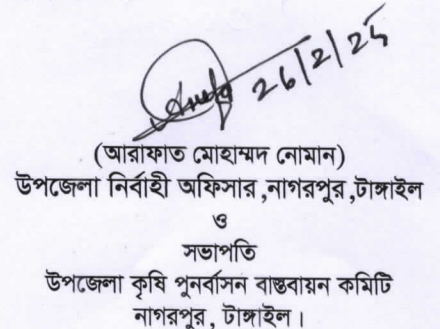 26/2/25
(আরাফাত মোহাম্মদ নোমান)
উপজেলা নির্বাহী অফিসার ,নাগরপুর ,টাঙ্গাইল
ও
সভাপতি
উপজেলা কৃষি পুনর্বাসন বাস্তবায়ন কমিটি
নাগরপুর, টাঙ্গাইল।